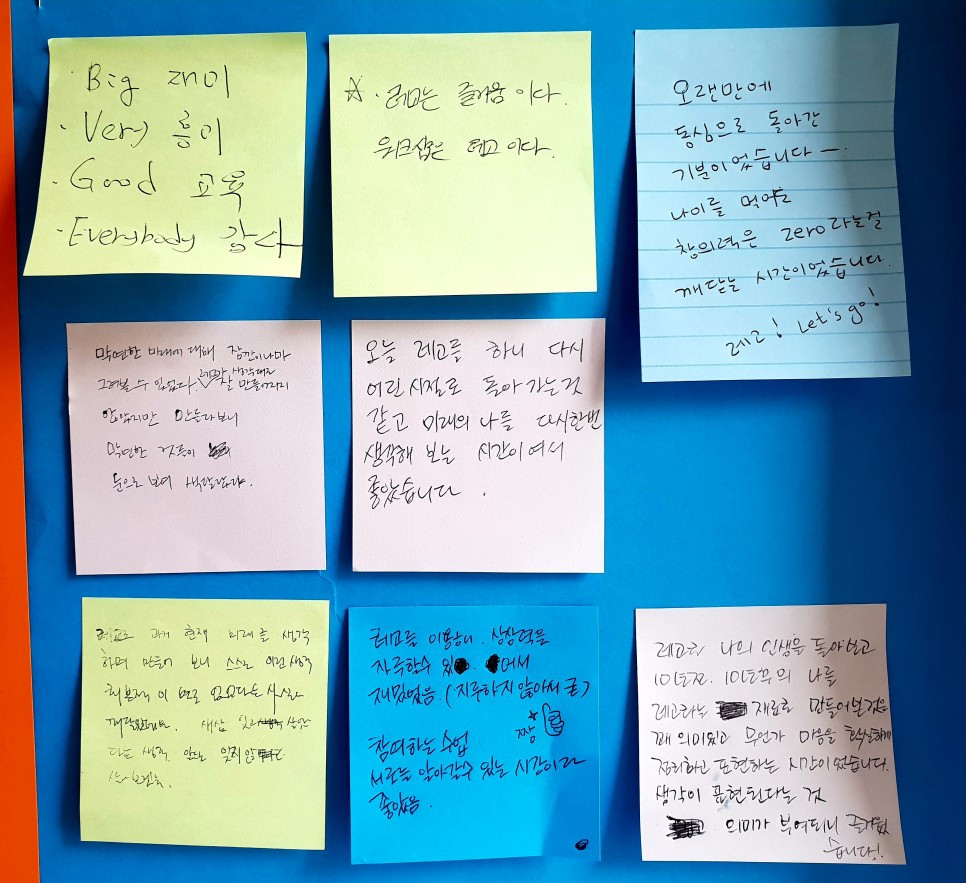 · Big 재미
· Very 흥미
· Good 교육
· Everybody 감사
☆ · 레고는 즐거움이다.
워크샵은 레고이다.
오랜만에
동심으로 돌아간
기분이었습니다 ㅡ.
나이를 먹어도
창의력은 zero라는걸
깨닫는 시간이었습니다.
레고! Let's go!
막연한 미래에 대해 잠깐이나마
그려볼 수 있었다. 생각대로
잘 만들어지지
않았지만 만들다보니
막연한 것들이
눈으로 보여
오늘 레고를 하니 다시
어린시절로 돌아가는것
같고 미래의 나를 다시한번
생각해 보는 시간이여서
좋았습니다.
레고로 과거 현재 미래를 생각
하며 만들어 보니 스스로 이런생각
해본적이 없었다는 사실
새삼
생각
레고를 이용하니 상상력을
자극할수 있어서
재밌었음 (지루하지 않아서 굳)
짱
참여하는 수업
서로를 알아갈수 있는 시간이라
좋았음.
레고로 나의 인생을 돌아보고
10년전. 10년후의 나를
레고라는 재료로 만들어본것은
꽤 의미있고 무언가 마음을 확실하게
정리하고 표현하는 시간이었습니다.
생각이 표현된다는 것
의미가 부여되니 즐거웠
습니다!